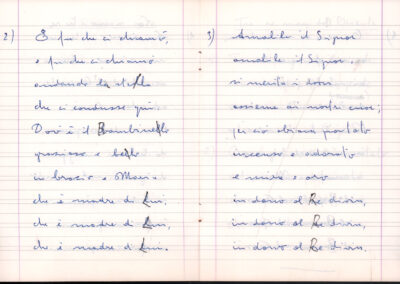 2) E fu che ci chiamò,
e fu che ci chiamò
andando la stella
che ci condusse qui.
Dov'è il Bambinello
grazioso e bello
in braccio a Maria
che è madre di Lui,
che è madre di Lui,
che è madre di Lui.
3) Amabile il Signor
amabile il Signor.
si merita i doni
assieme ai nostri cuor;
per ciò abbiam portato
incenso e adorato
e mirra e oro
in dono al Re divin,
in dono al Re divin,
in dono al Re divin.